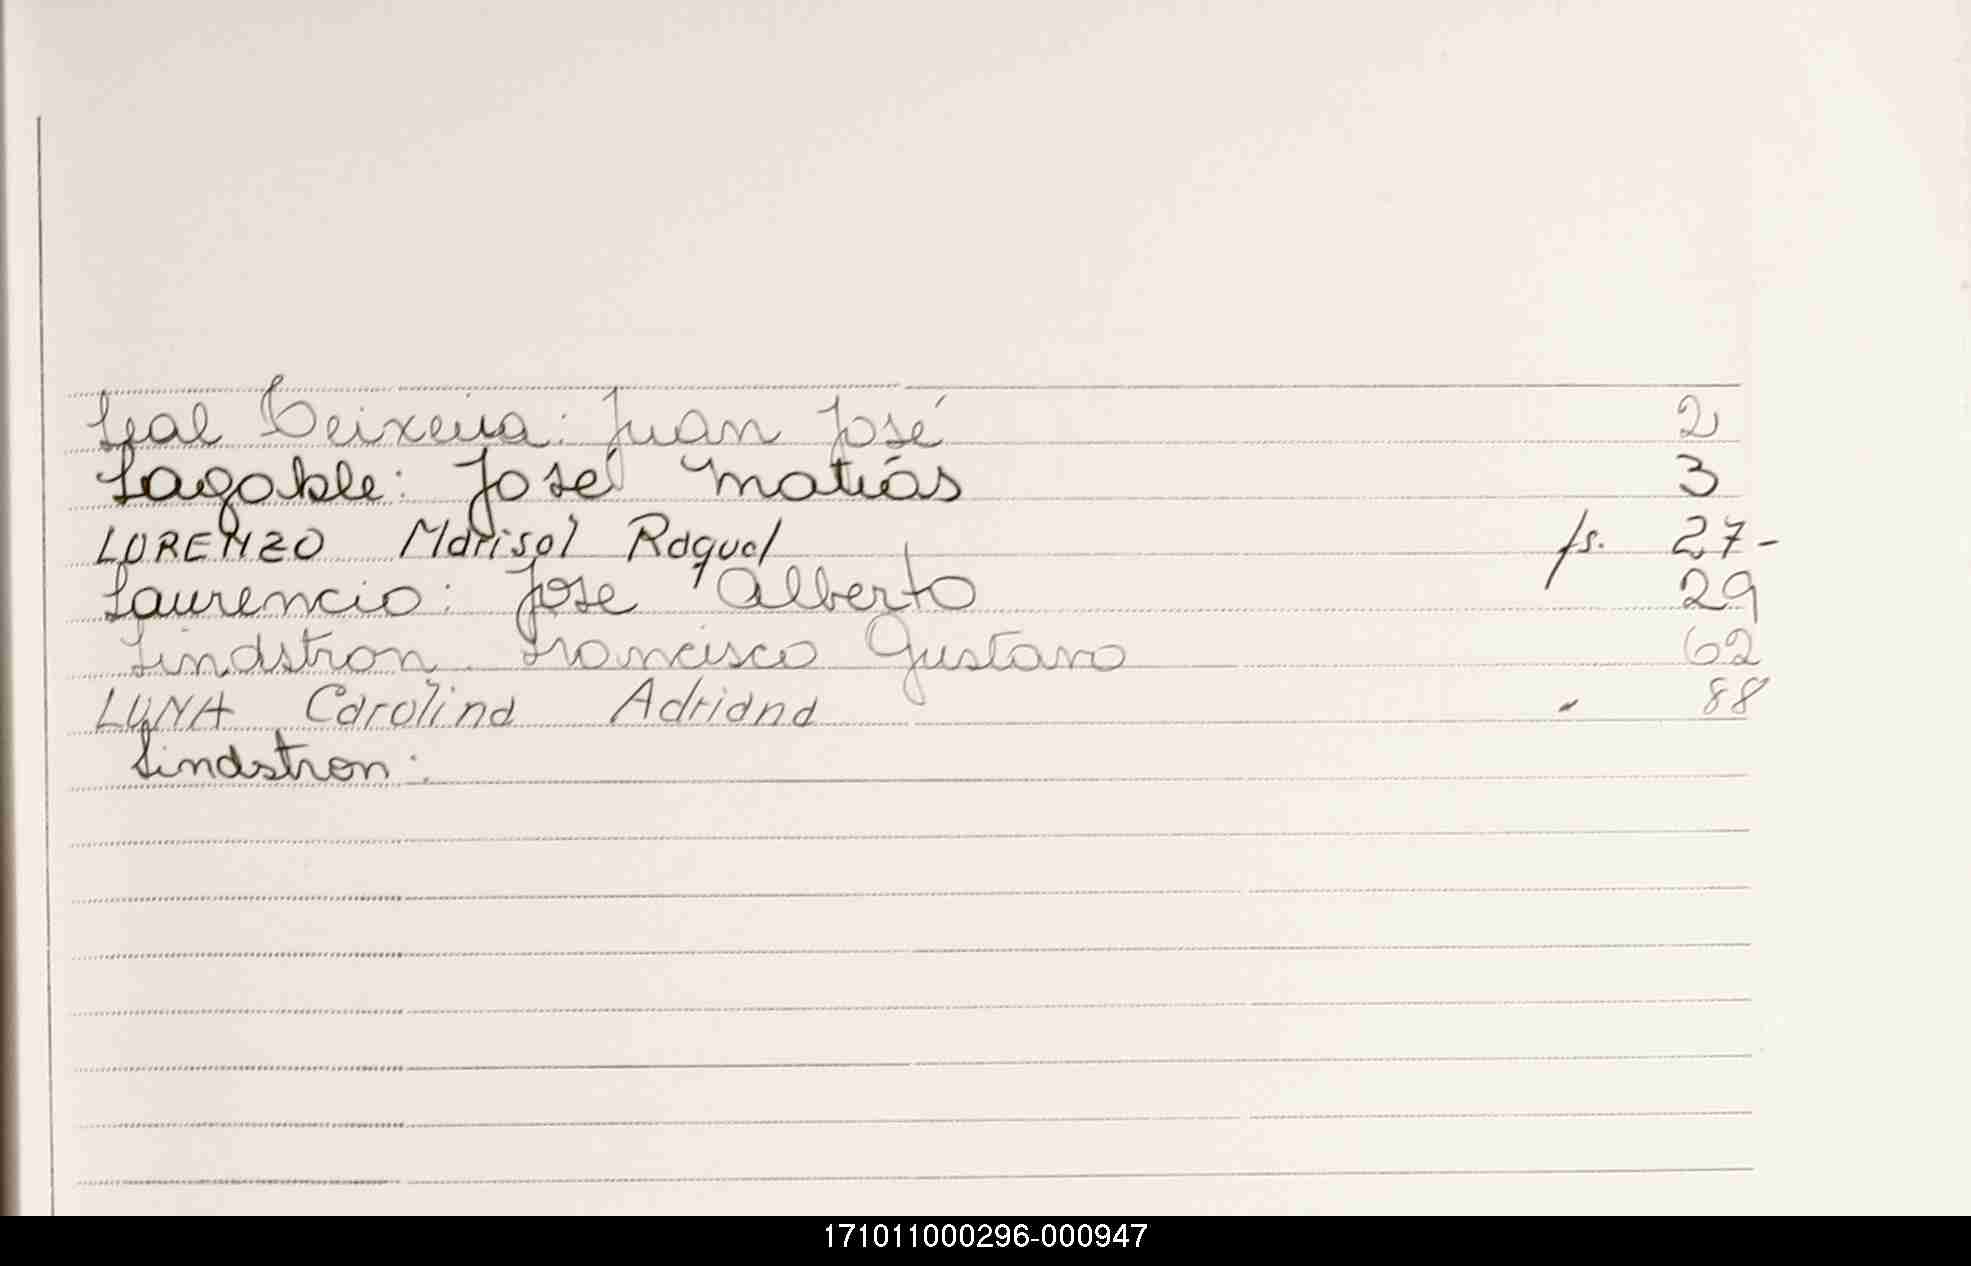 Leal Teixeira: Juan José 2
Lagable: José Matías 3
LORENZO Marisol Raquel fs. 27-
Laurencio: Jose Alberto 29
Lindstron Francisco Gustavo 62
LUNA Carolina Adriana - 88
Lindstron:
171011000296-000947